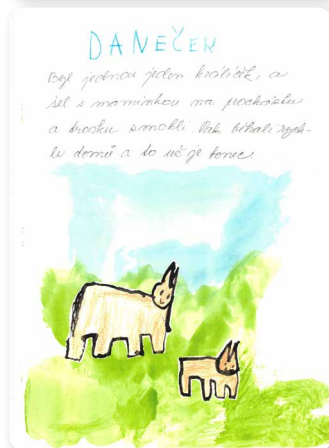 DANEČEK
Byl jednou jeden králíček, a
šel s maminkou na procházku
a trošku zmokli. Pak běhali rych-
le domů a to už je konec.